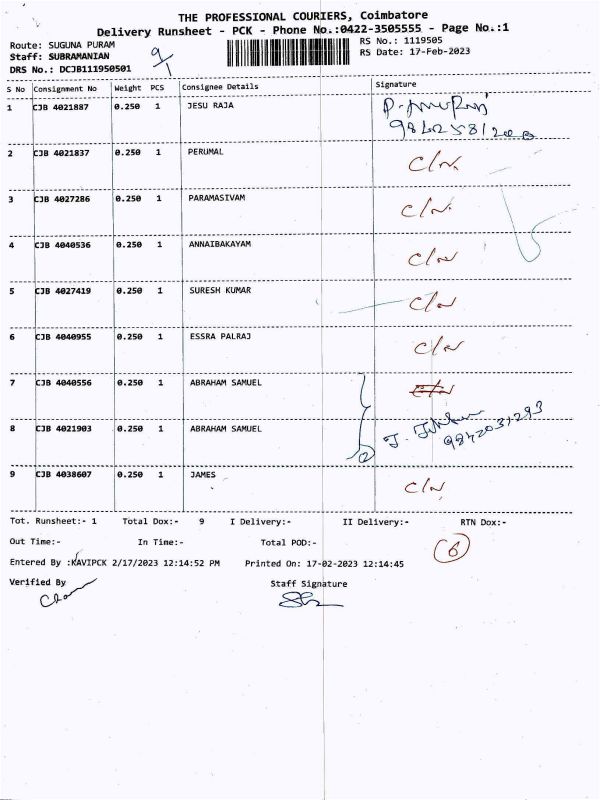 THE PROFESSIONAL COURIERS, Coimbatore
Delivery Runsheet - PCK - Phone No.:0422-3505555 - Page No.:1
Route: SUGUNA PURAM RS No.: 1119505
Staff: SUBRAMANIAN 9/1 RS Date: 17-Feb-2023
DRS No.: DCJB111950501
S No Consignment No Weight PCS Consignee Details Signature
1 CJB 4021887 0.250 1 JESU RAJA
2 CJB 4021837 0.250 1 PERUMAL C/N
3 CJB 4027286 0.250 1 PARAMASIVAM C/N
4 CJB 4040536 0.250 1 ANNAIBAKAYAM C/N
5 CJB 4027419 0.250 1 SURESH KUMAR C/N
6 CJB 4040955 0.250 1 ESSRA PALRAJ C/N
7 CJB 4040556 0.250 1 ABRAHAM SAMUEL C/N
8 CJB 4021903 0.250 1 ABRAHAM SAMUEL 9842031293
2
9 CJB 4038607 0.250 1 JAMES C/N
Tot. Runsheet:- 1 Total Dox:- 9 I Delivery:- II Delivery:- RTN Dox:-
Out Time:- In Time:- Total POD:- 6
Entered By :KAVIPCK 2/17/2023 12:14:52 PM Printed On: 17-02-2023 12:14:45
Verified By Staff Signature